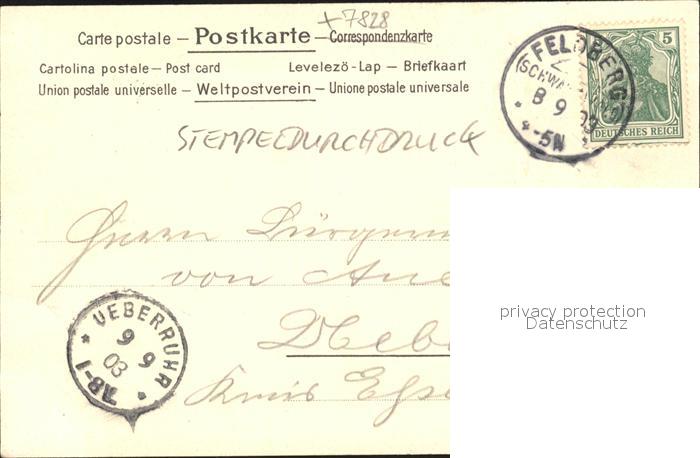 +7828
Carte postale — Postkarte — Correspondenzkarte
Cartolina postale — Post card Levelezö-Lap — Briefkaart
Union postale universelle — Weltpostverein — Unione postale universale
STEMPELDURCHDRUCK
FELDBERG
(SCHWARZWALD)
8 9
03
4-5N
5
DEUTSCHES REICH
Herrn Bürgerm
von
Kreis
UEBERRUHR
9 9
03
7.8-1
privacy protection
Datenschutz